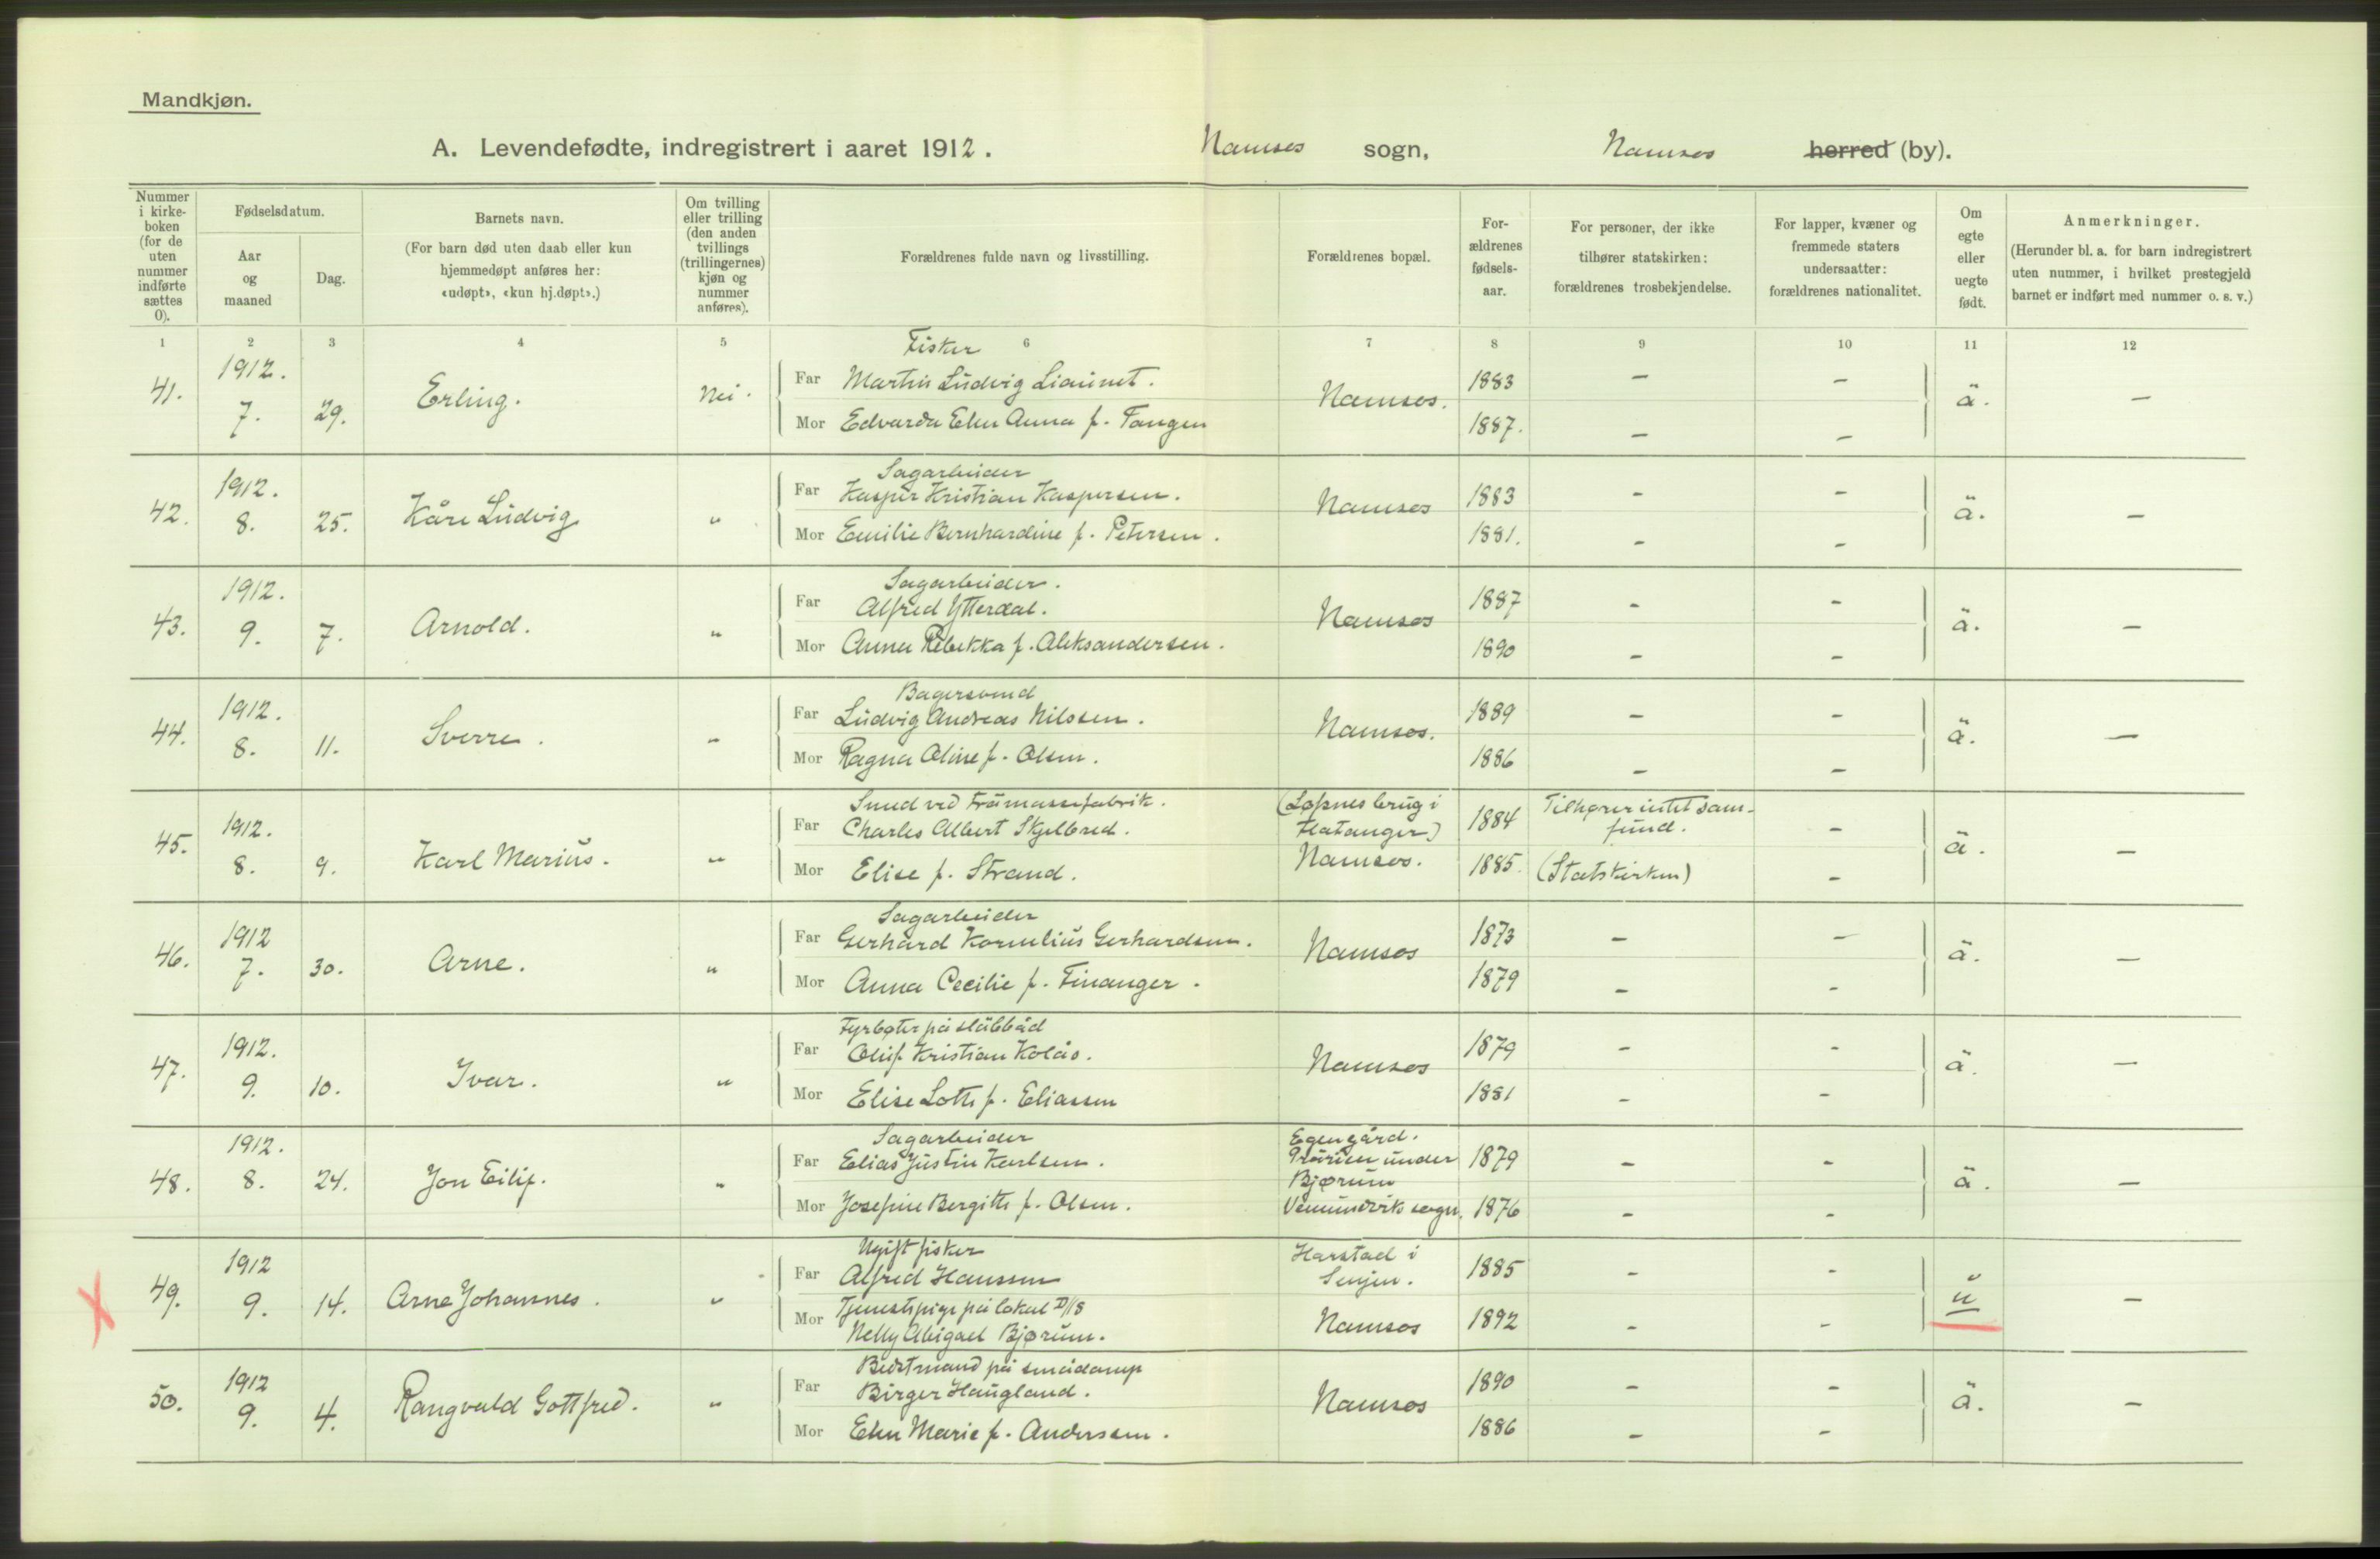 Mandkjøn.
A. Levendefødte, indregistrert i aaret 1912. Namsos sogn, Namsos herred (by).
Nummer i kirkeboken (for de uten nummer indførte sættes 0).
Fødselsdatum.
Aar og maaned
Dag.
Barnets navn.
(For barn død uten daab eller kun hjemmedøpt anføres her: «udøpt», «kun hj.døpt».)
Om tvilling eller trilling (den anden tvillings (trillingernes) kjøn og nummer anføres).
Forældrenes fulde navn og livsstilling.
Forældrenes bopæl.
For-ældrenes fødsels-aar.
For personer, der ikke tilhører statskirken: forældrenes trosbekjendelse.
For lapper, kvæner og fremmede staters undersaatter: forældrenes nationalitet.
Om egte eller uegte født.
Anmerkninger.
(Herunder bl. a. for barn indregistrert uten nummer, i hvilket prestegjeld barnet er indført med nummer o. s. v.)
1 2 3 4 5 6 7 8 9 10 11 12
Fisker
41. 1912. 7. 29. Erling. Nei. Far Martin Ludvig Liaunet. Namsos. 1883 – – ä. –
Mor Edvarda Elen Anna f. Tangen 1887. – –
Sagarbeider
42. 1912. 8. 25. Kåre Ludvig " Far Kasper Kristian Kaspersen. Namsos 1883 – – ä. –
Mor Emilie Bernhardine f. Petersen. 1881. – –
Sagarbeider.
43. 1912. 9. 7. Arnold. " Far Alfred Ytterdal. Namsos 1887 – – ä. –
Mor Anna Rebekka f. Aleksandersen. 1890 – –
Bagersvend
44. 1912. 8. 11. Sverre. " Far Ludvig Andreas Nilssen. Namsos. 1889 – – ä. –
Mor Ragna Oline f. Olsen. 1886 – –
Smed ved træmassefabrik. (Løfsnes brug i
45. 1912. 8. 9. Karl Marius. " Far Charles Albert Skjelbred. Flatanger) 1884 Tilhører intet samfund. – ä. –
Mor Elise f. Strand. Namsos. 1885. (Statskirken) –
Sagarbeider
46. 1912 7. 30. Arne. " Far Gerhard Kornelius Gerhardsen. Namsos 1873 – – ä. –
Mor Anna Cecilie f. Finanger. 1879 – –
Fyrbøter på släbbåd
47. 1912. 9. 10. Ivar. " Far Oluf Kristian Kolås. Namsos 1879 – – ä. –
Mor Elise Lotte f. Eliassen 1881 – –
Sagarbeider Egen gård.
48. 1912. 8. 24. Jon Eilif. " Far Elias Justin Karlsen. Prärien under Bjørum 1879 – – ä. –
Mor Josefine Bergitte f. Olsen. Vemundvik sogn. 1876 – –
Ugift fisker Harstad i
49. 1912 9. 14. Arne Johannes. " Far Alfred Hanssen Senjen. 1885 – – u –
Mor Tjenestepige på lokal D/S
Nelly Abigael Bjørum. Namsos 1892 – –
Bedstmand på smådamp
50. 1912 9. 4. Rangvald Gottfred. " Far Birger Haugland. Namsos 1890 – – ä. –
Mor Elen Marie f. Anderssen. 1886 – –